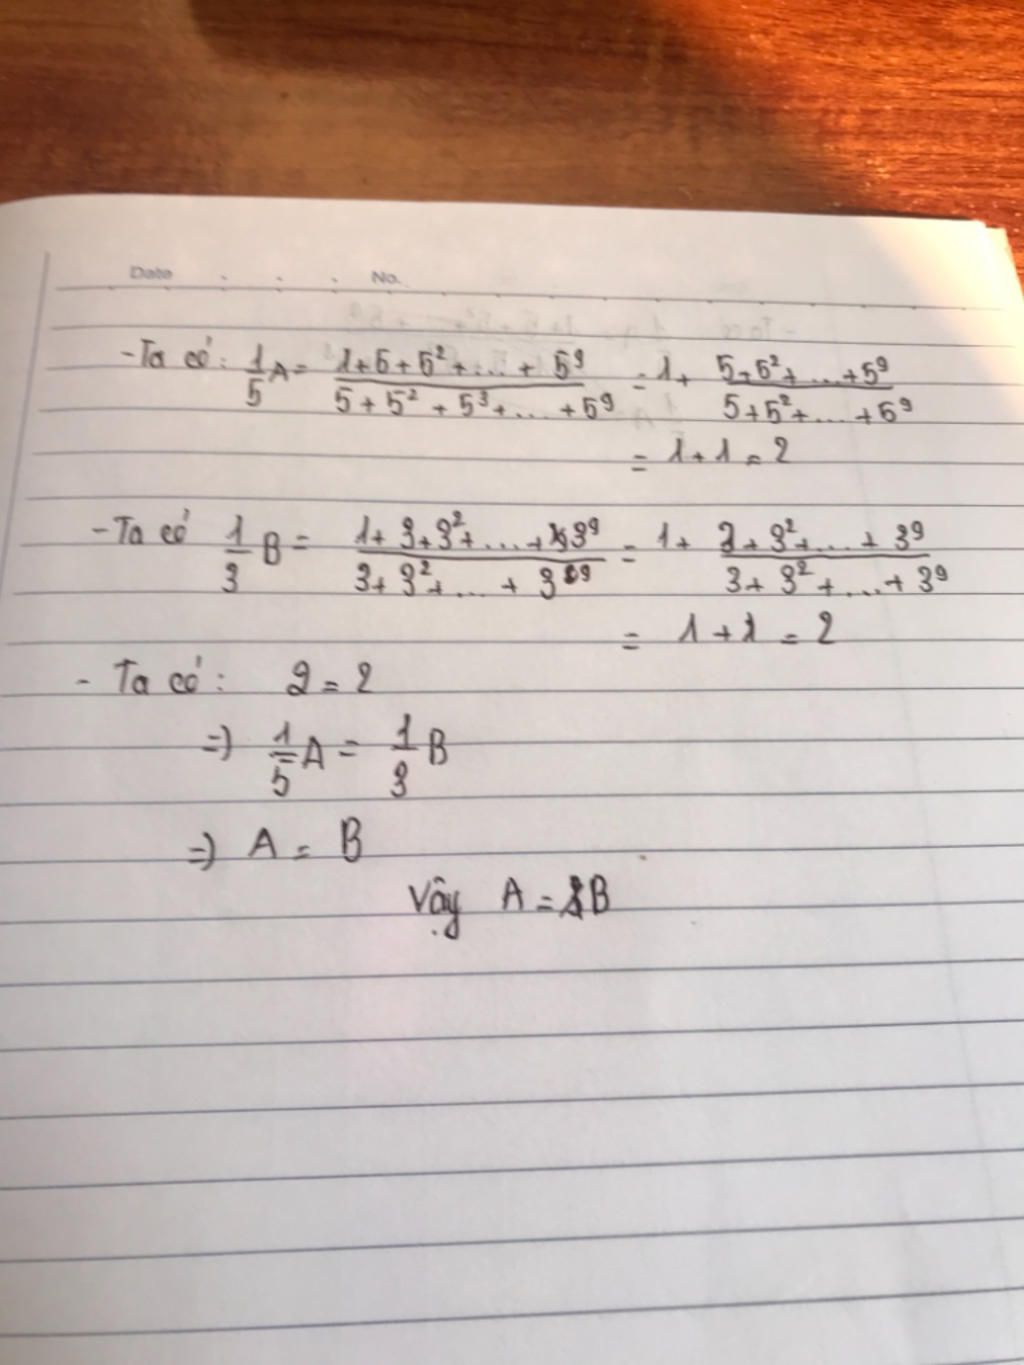 Date . : . No.
- Ta có: 1/5 A = (1+5+5²+...+5⁹)/(5+5²+5³+...+5⁹) = 1 + (5+5²+...+5⁹)/(5+5²+...+5⁹)
= 1+1 = 2
- Ta có 1/3 B = (1+3+3²+...+3⁹)/(3+3²+...+3⁹) = 1 + (3+3²+...+3⁹)/(3+3²+...+3⁹)
= 1+1 = 2
- Ta có: 2 = 2
=> 1/5 A = 1/3 B
=> A = B
Vậy A = B